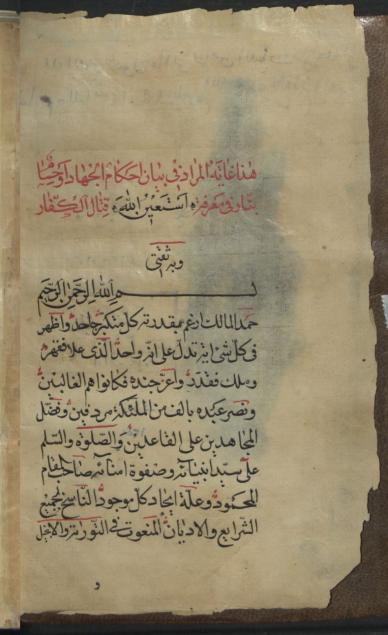 هذا غاية المراد في بيان احكام الجهاد
استعين الله قتال الكفار
وبه ثقتي
بسم الله الرحمن الرحيم
حمد المالك ارغم بمقدرته كل متكبر جاحد واظهر
في كل شئ اية تدل على انه واحد الذي علا فقهر
وملك فقدر واعز جنده فكانوا هم الغالبين
ونصر عبده بالف من الملئكة مردفين وفضل
المجاهدين على القاعدين والصلوة والسلم
على سيد انبيائه وصفوة امنائه صاحب المقام
المحمود وعلة ايجاد كل موجود الناسخ لجميع
الشرايع والاديان المنعوت في التورية والانجيل
و